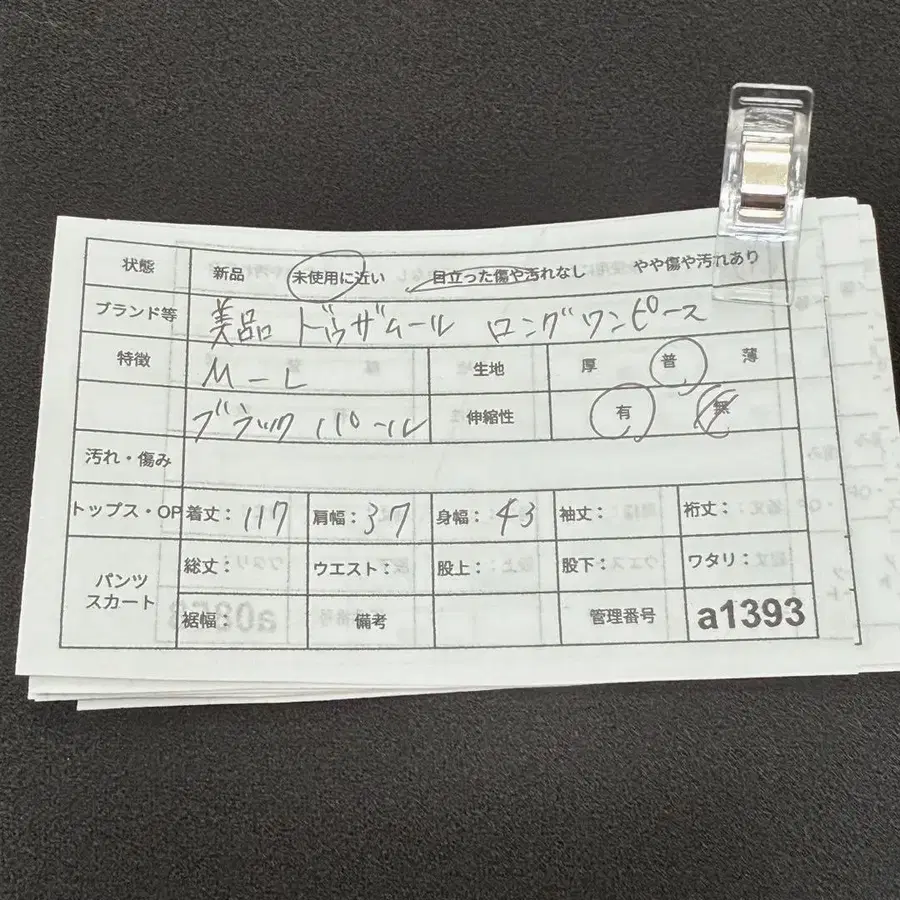 状態 新品 未使用に近い 目立った傷や汚れなし やや傷や汚れあり
ブランド等 美品 ドゥザムール ロングワンピース
特徴 M-L 生地 厚 普 薄
ブラック パール 伸縮性 有 無
汚れ・傷み
トップス・OP 着丈:117 肩幅:37 身幅:43 袖丈: 裄丈:
パンツ スカート 総丈: ウエスト: 股上: 股下: ワタリ:
裾幅: 備考 管理番号 a1393